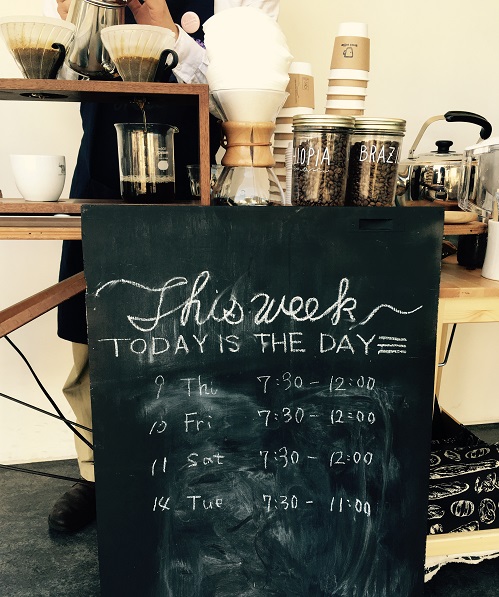 ETHIOPIA
BRAZIL
This week
TODAY IS THE DAY
9 Thi 7:30 - 12:00
10 Fri 7:30 - 12:00
11 Sat 7:30 - 12:00
14 Tue 7:30 - 11:00